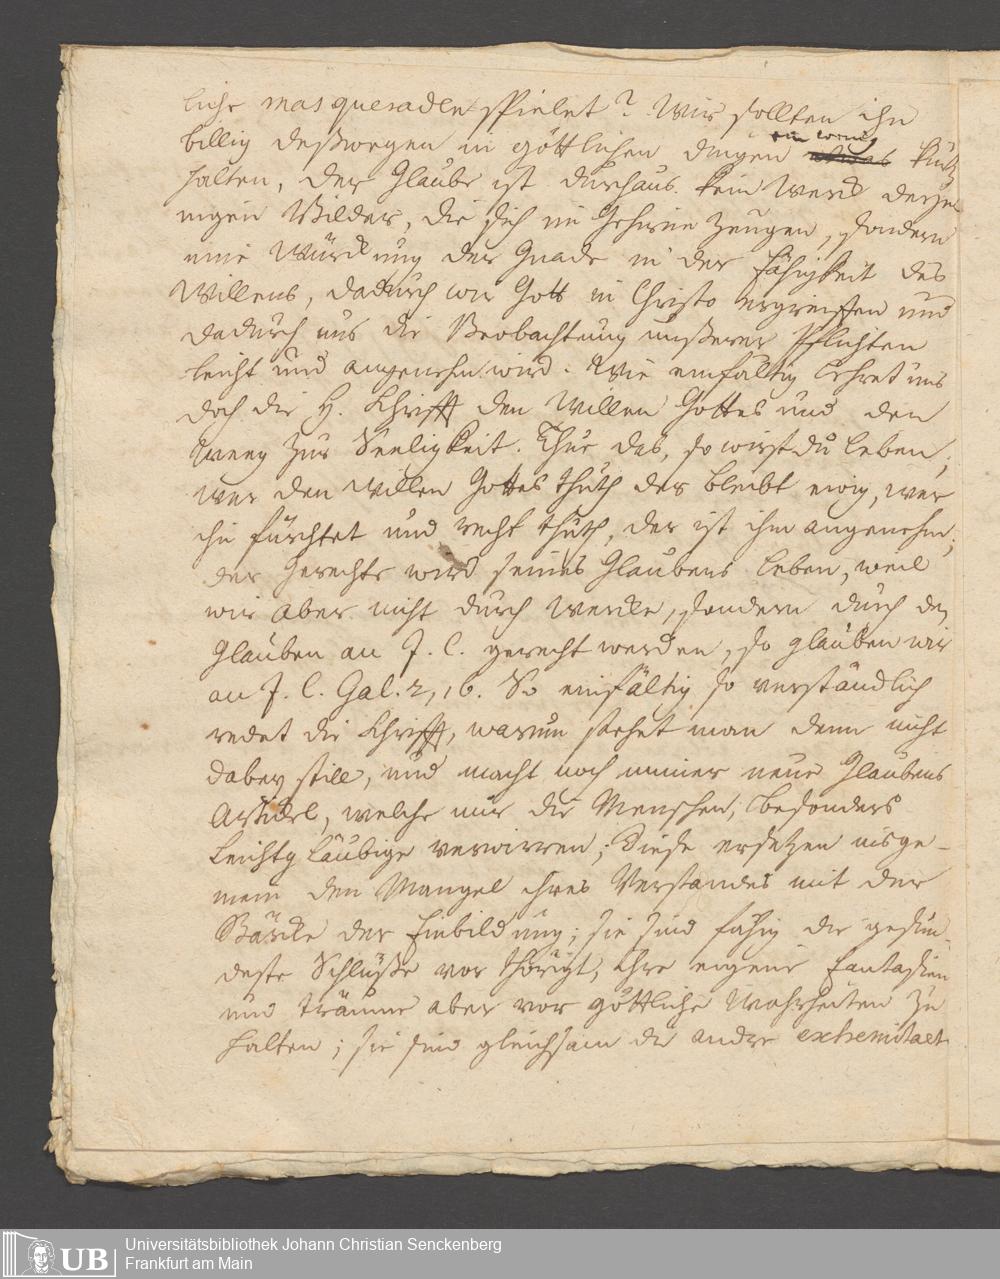 liche masquerade spielet? Wir sollten ihn
billig deßwegen in göttlichen dingen ein wenig kurtz
halten, der Glaube ist durchaus kein Werck derje-
nigen Bilder, die sich im Gehirne zeugen, sondern
eine Würckung der Gnade in der Fähigkeit des
Willens, dadurch wir Gott in Christo ergreiffen und
dadurch uns die Beobachtung unßerer Pflichten
leicht und angenehm wird. Wie einfältig lehret uns
doch die H. Schrifft den Willen Gottes und den
Weeg zur Seeligkeit. Thue das, so wirst du leben;
wer den Willen Gottes thuth der bleibt ewig, wer
ihn fürchtet und recht thuth, der ist ihm angenehm;
der Gerechte wird seines Glaubens leben, weil
wir aber nicht durch Wercke, sondern durch den
Glauben an J. C. gerecht werden, so glauben wir
an J. C. Gal. 2, 16. So einfältig so verständlich
redet die Schrifft, warum stehet man denn nicht
dabey still, und macht noch immer neue Glaubens
Artickel, welche nur die Menschen, besonders
Leichtgläubige verwirren; Diese ersetzen insge-
mein den Mangel ihres Verstandes mit der
Stärcke der Einbildung; sie sind fähig die gesün-
deste Schlüße vor thörigt, ihre eigene Fantasien
und träume aber vor göttliche Wahrheiten zu
halten; sie sind gleichsam die andre extremitaet
Universitätsbibliothek Johann Christian Senckenberg
Frankfurt am Main
UB